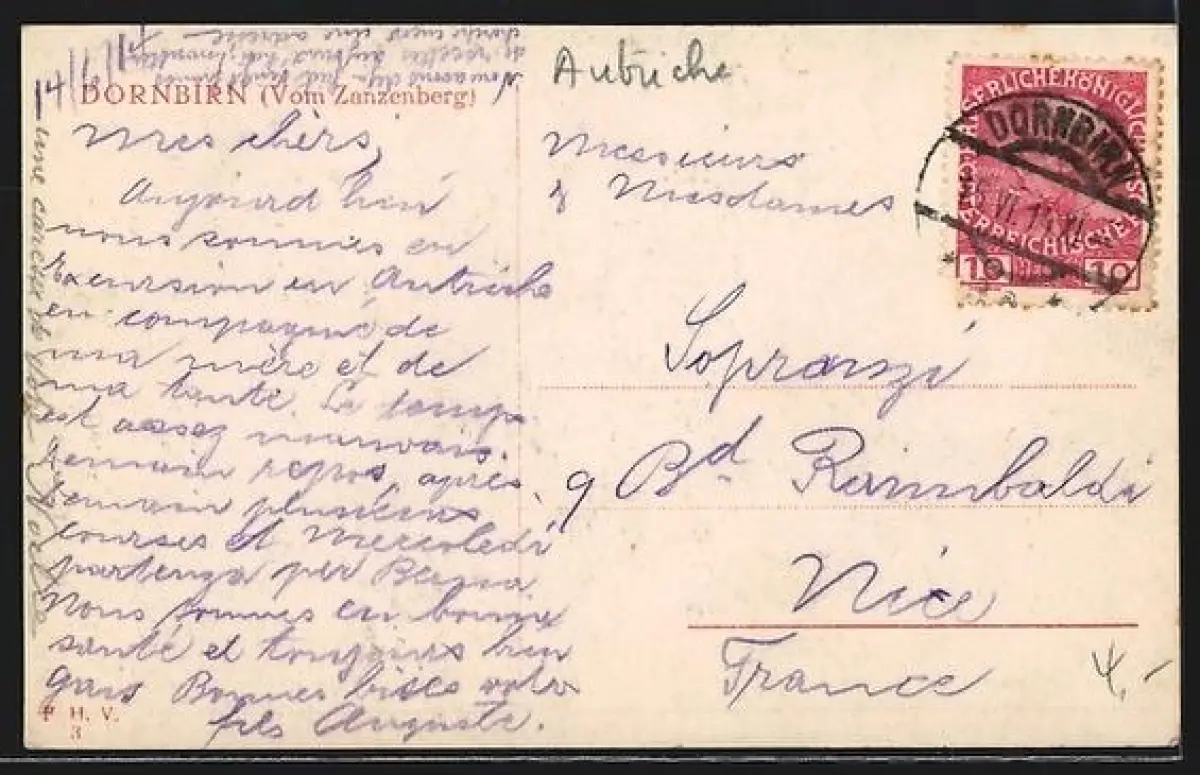 14/6/14
DORNBIRN (Vom Zanzenberg)
Mes chers,
Aujourd'hui
nous sommes en
Excursion en Autriche
en compagnie de
ma mère et de
ma tante. Le temps
est assez mauvais.
Demain repos, après
demain plusieurs
courses et Mercoledi
partenza per
Nous sommes en bonne
santé et toujours bien
gais Bonnes bises votre
fils Auguste.
P H. V.
3
une
Autriche
Messieurs
& Mesdames
Sopranzi
9 Bd Raimbaldi
Nice
France
4.-
KAISERLICHEKÖNIGLICHE
ÖSTERREICHISCHE
10 HELLER 10
DORNBIRN
VI. 14